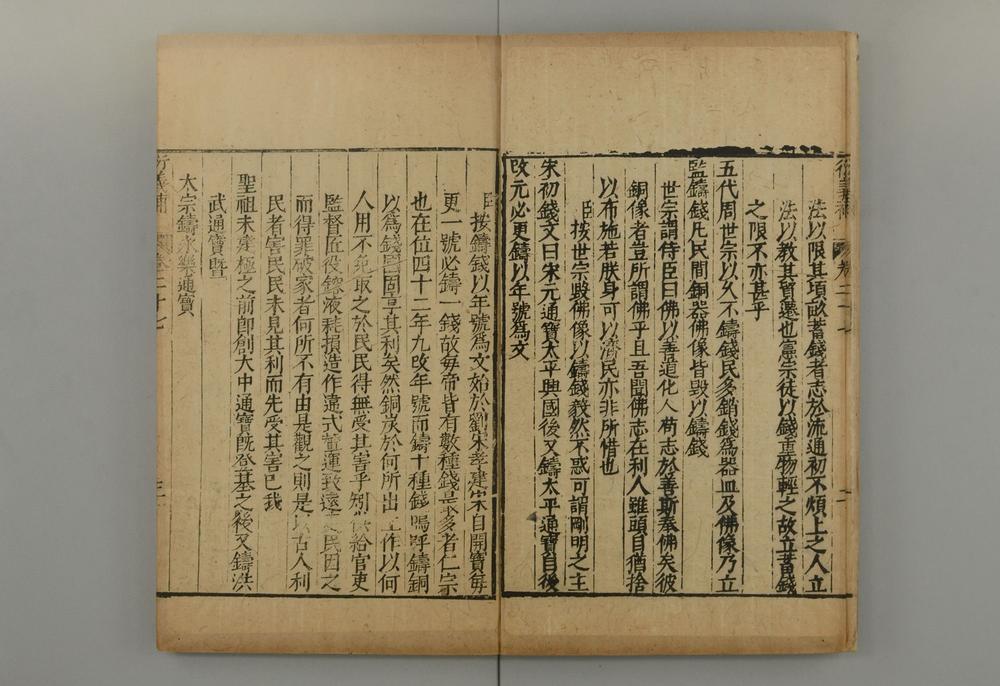 法以限其項畝蓄錢者志於流通初不煩上之人立
法以教其貿遷也憲宗徒以錢重物輕之故立蓄錢
之限不亦甚乎
五代周世宗以久不鑄錢民多銷錢爲器皿及佛像乃立
監鑄錢凡民間銅器佛像皆毀以鑄錢
世宗謂侍臣曰佛以善道化人苟志於善斯奉佛矣彼
銅像者豈所謂佛乎且吾聞佛志在利人雖頭目猶捨
以布施若朕身可以濟民亦非所惜也
臣按世宗毀佛像以鑄錢毅然不惑可謂剛明之主
宋初錢文曰宋元通寶太平興國後又鑄太平通寶自後
改元必更鑄以年號爲文
臣按鑄錢以年號爲文始於劉宋孝建宋自開寶每
更一號必鑄一錢故每帝皆有數種錢最多者仁宗
也在位四十二年九改年號而鑄十種錢嗚呼鑄銅
以爲錢國固享其利矣然銅炭於何所出工作以何
人用不免取之於民民得無受其害乎矧供給官吏
監督匠役鎔液耗損造作違式輦運致遠民因之
而得罪破家者何所不有由是觀之則是古人利
民者害民民未見其利而先受其害已我
聖祖未建極之前卽創大中通寶旣登基之後又鑄洪
武通寶曁
太宗鑄永樂通寶